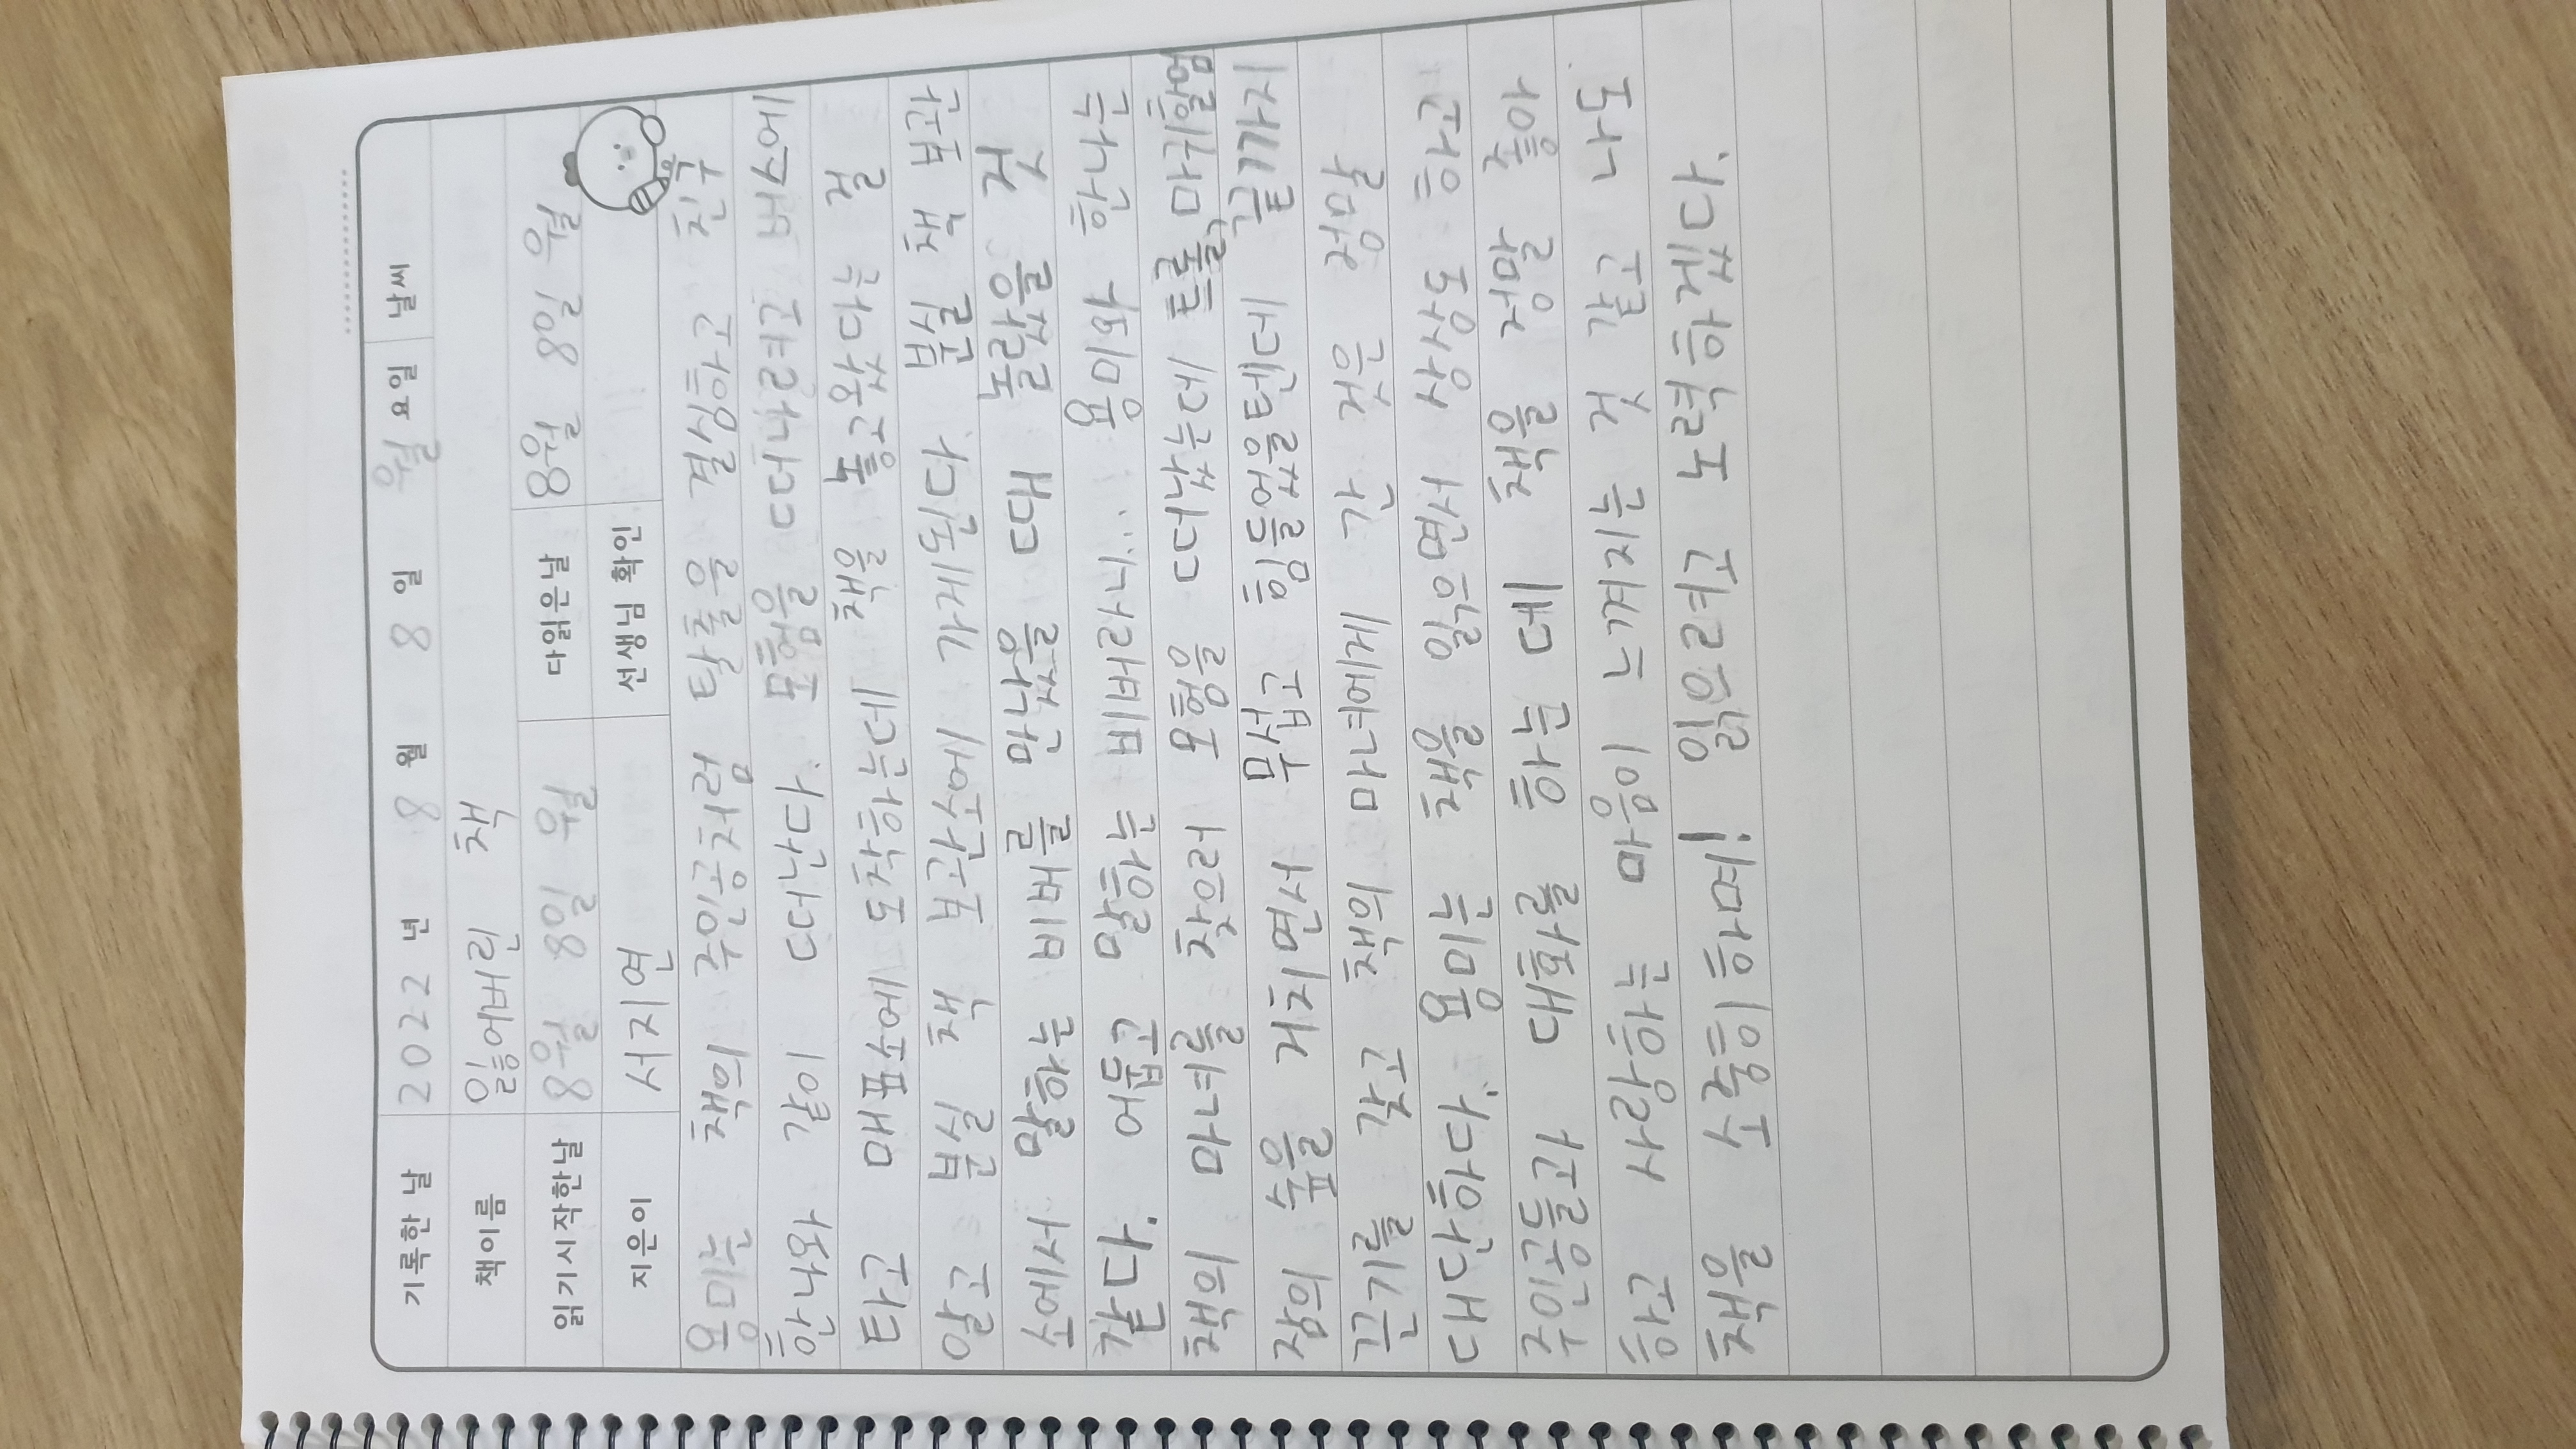 기록한 날 2022 년 8 월 8 일 월 요일 날씨
책이름 잃어버린 책
읽기시작한날 8월 8일 월 다읽은날 8월 8일 월
지은이 서지연 선생님 확인
용미는 책의 주인공처럼 탈출을 결심하고 친구
한나와 같이 떠난다. 모험을 떠나려고 버스에
타고 매표소에 도착하는데 책을 놓고왔다는 걸
알고 분실 책 보관소에 가게된다. 분실 책 보관
소에서 말하는 비버를 만났을 때 놀랐을 것
같다. 어둡고 말하는 비버라니... 용미와 한나는
책의 마녀를 찾으러 모험을 떠났는데 트롤, 마귀할멈
잠의 숲을 거치면서 무섭고 힘들었을텐데 끝까지
끈기를 갖고 책의 마녀에게 간 것은 정말
대단하다. 용미는 책을 읽으면서 상상도 하고
주인공들과 대화를 하는 데 책을 정말 좋아
하고 사랑하는 마음이 느껴지는 것 같고 나도
책을 소중히하며! 읽으려고 노력하겠다.